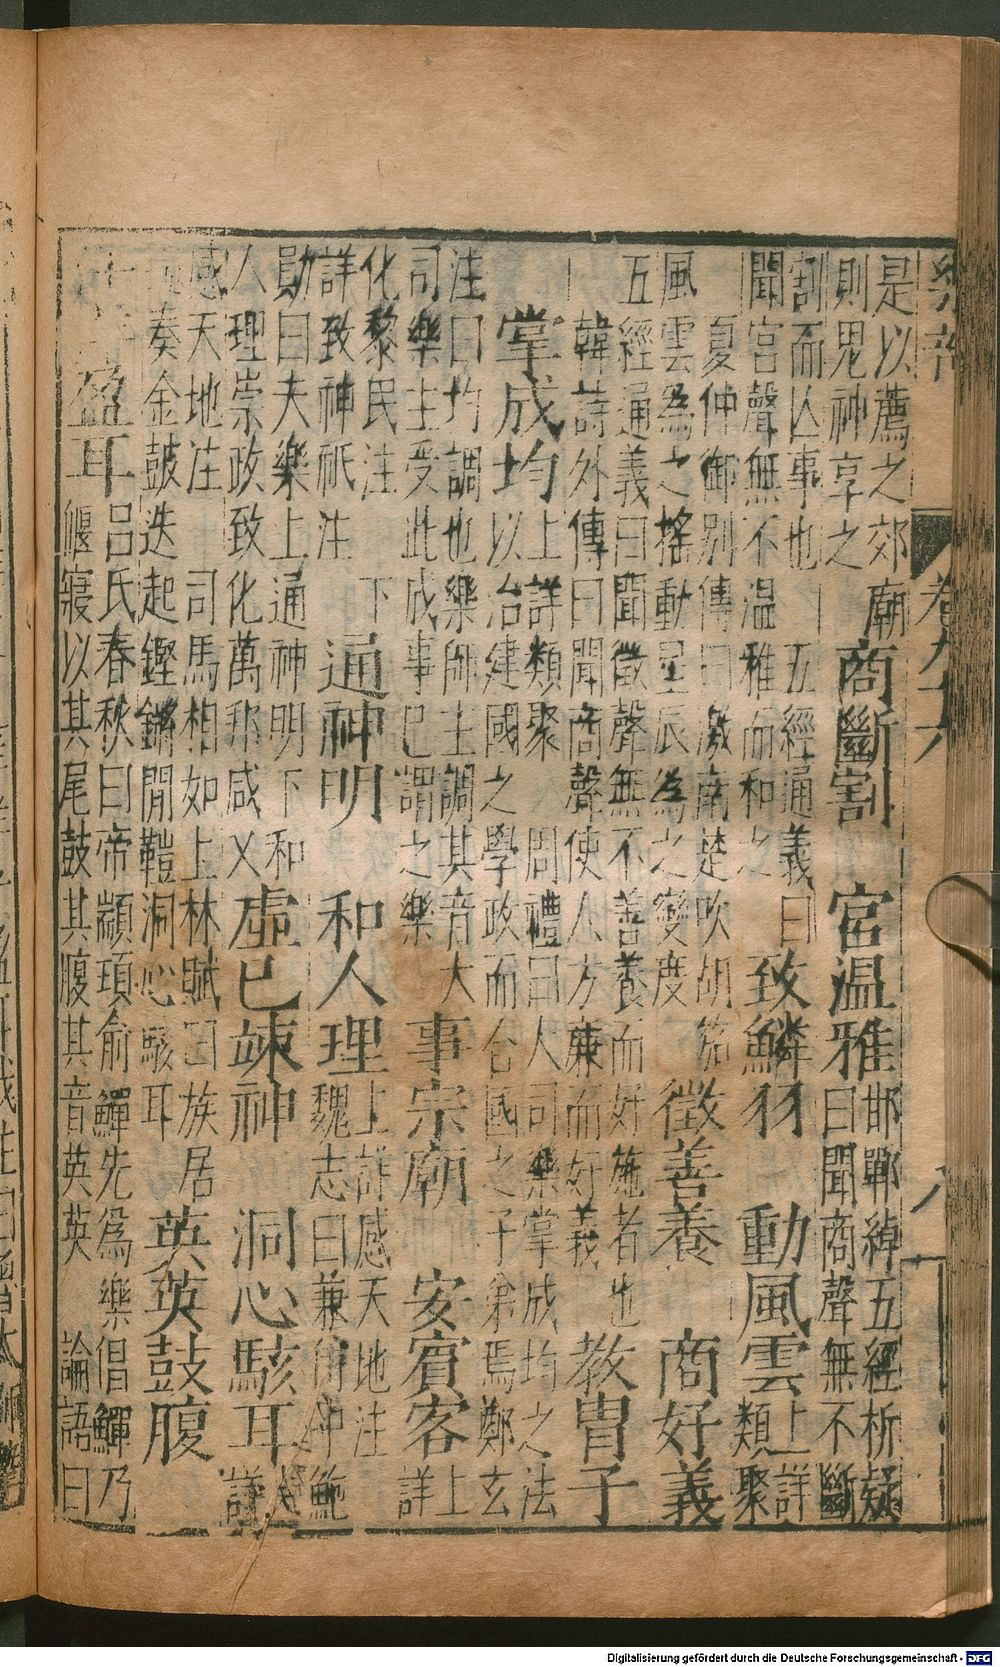 是以薦之郊廟
則鬼神享之
商斷割　宮溫雅
邯鄲綽五經析疑
曰聞商聲無不斷
割而亾事也｜五經通義曰
聞宮聲無不溫雅而和之
致鱗羽　動風雲
上詳
類聚
夏仲御別傳曰激南楚吹胡笳
風雲為之搖動星辰為之變度
徵善養　商好義
五經通義曰聞徵聲無不善養而好施者也
｜韓詩外傳曰聞商聲使人方廉而好義
教冑子
掌成均
上詳類聚　周禮曰人司樂掌成均之法
以治建國之學政而合國之子弟焉鄭玄
注曰均調也樂師主調其音大
司樂主受此成事已謂之樂
事宗廟　安賓客
上
詳
化黎民注　下
詳致神祇注
通神明　和人理
上詳感天地注
魏志曰兼　沖鮑
勛曰夫樂上通神明下和
人理崇政致化萬邦咸乂
虛已竦神　洞心駭耳
詳
感天地注　司馬相如上林賦曰族居
奏金鼓迭起鏗鏘閶鞳洞心駭耳
英英鼓腹
盈耳
呂氏春秋曰帝顓頊俞鱓先為樂倡鱓乃
偃寢以其尾鼓其腹其音英英　論語曰
卷九十六
八
Digitalisierung gefördert durch die Deutsche Forschungsgemeinschaft - DFG